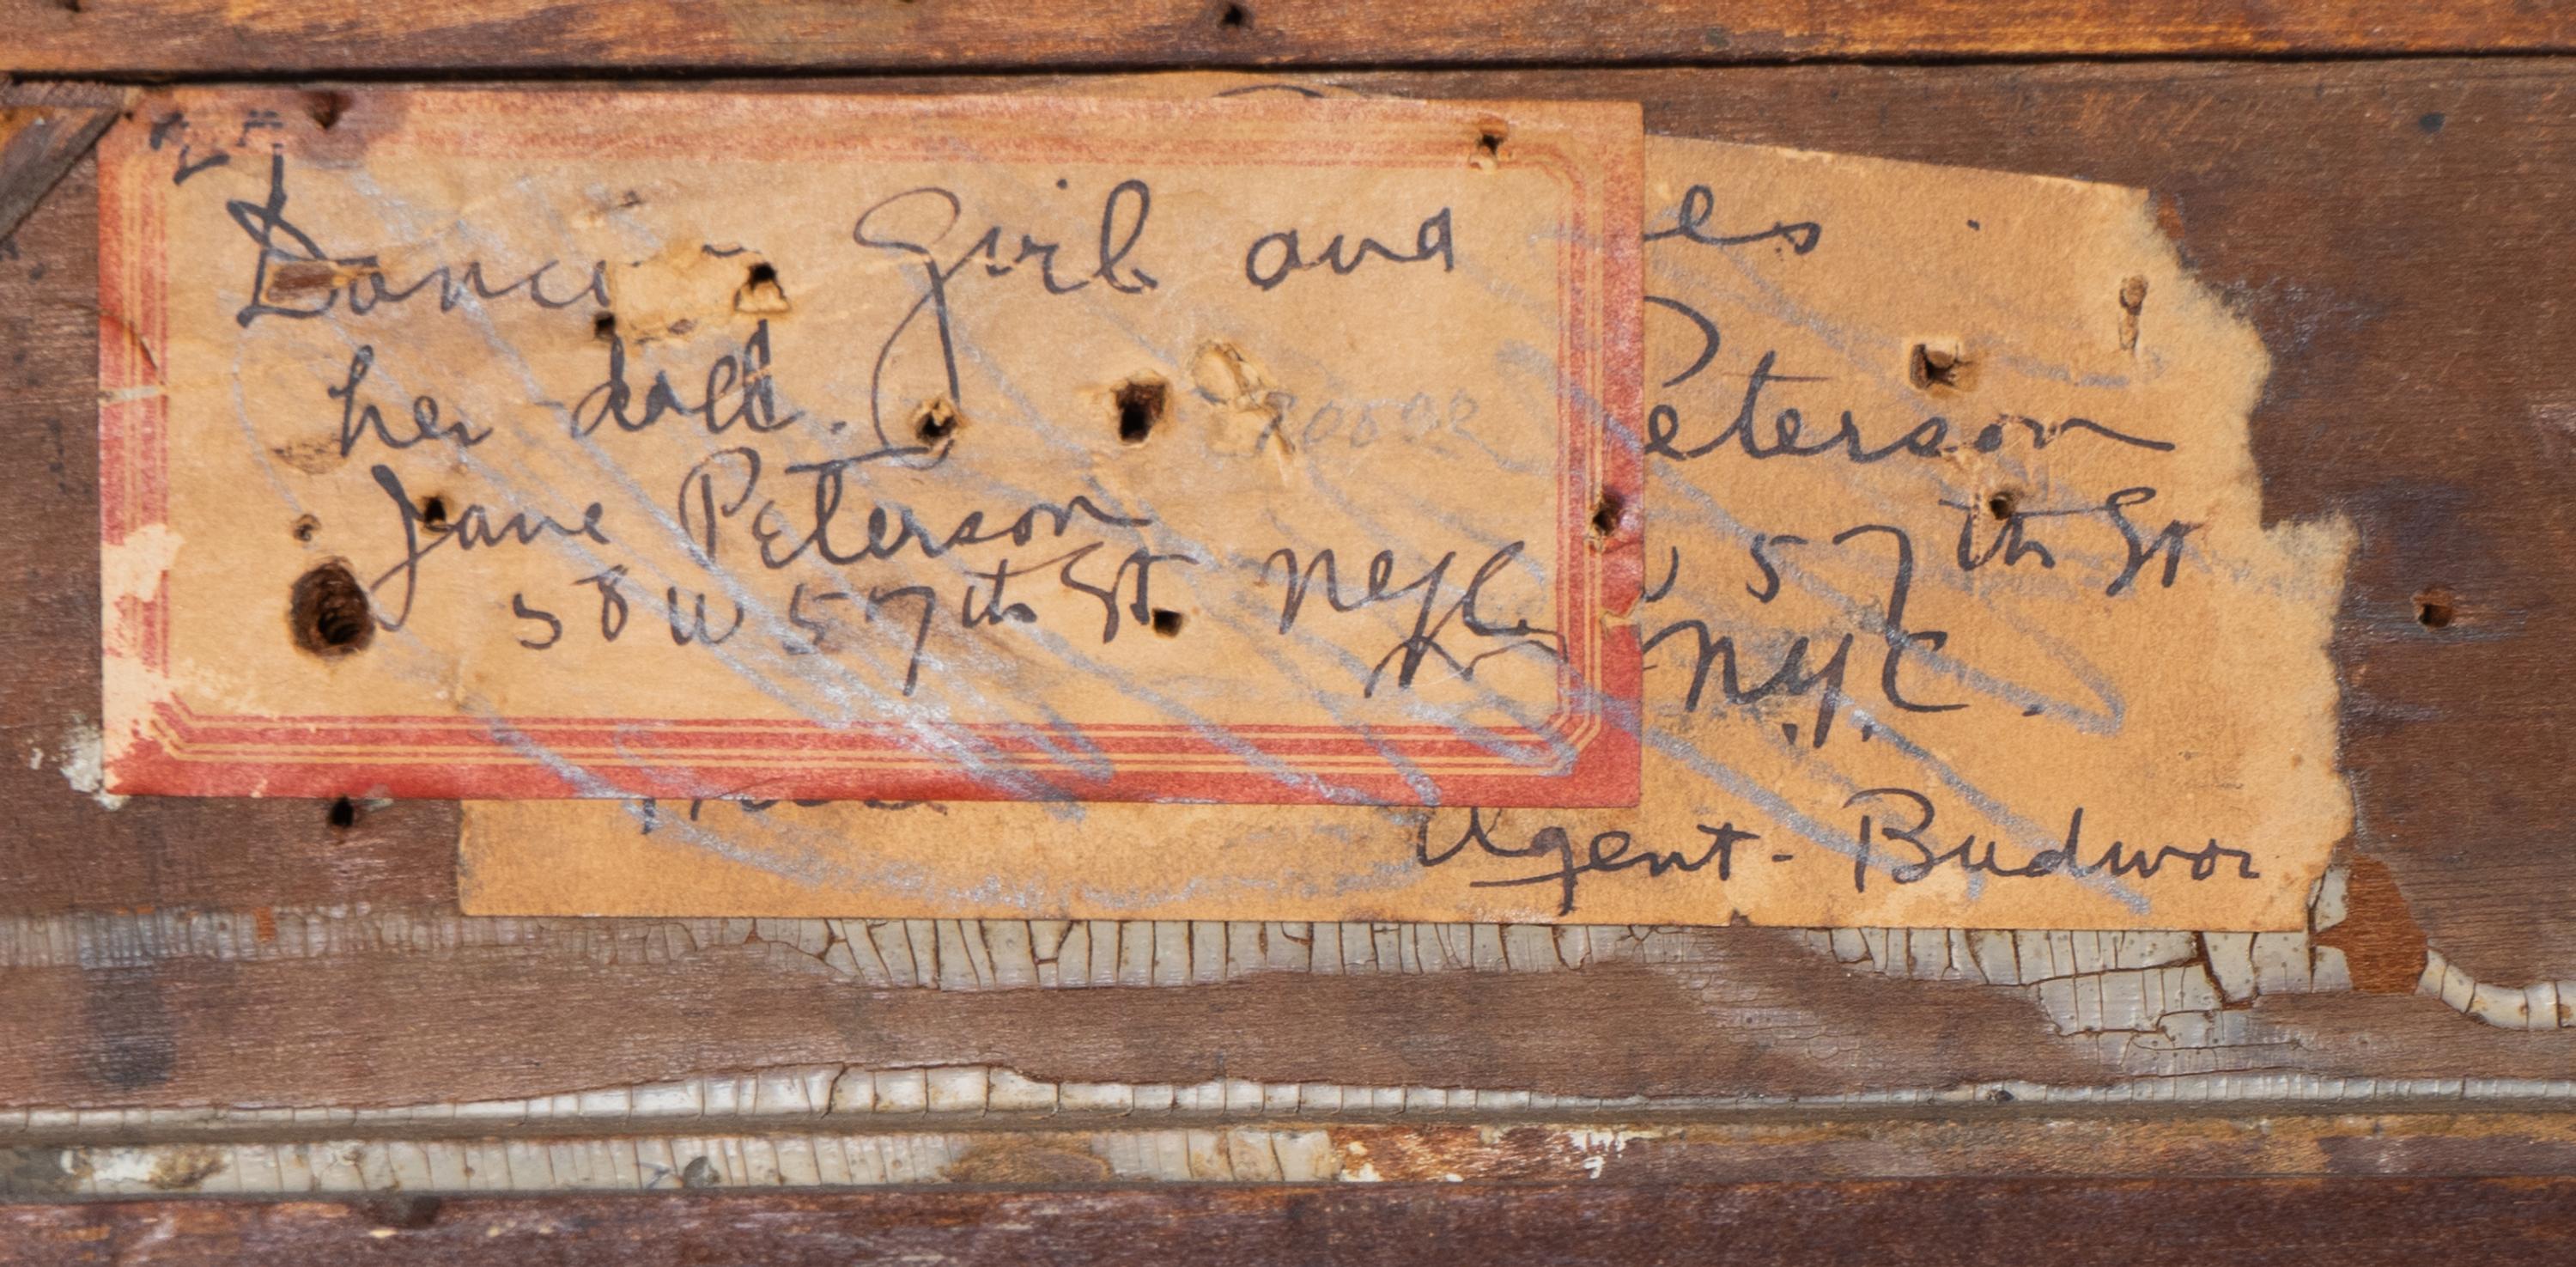 Dancing Girl and
her doll.
Jane Peterson
58 W 57th St N.Y.C.
es
Peterson
W 57th St
N.Y.C.
Agent - Budwor